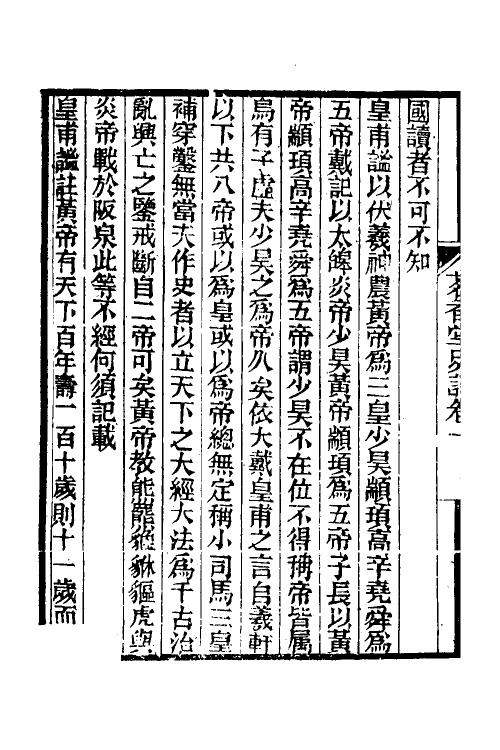 國讀者不可不知
皇甫謐以伏羲神農黃帝爲三皇少昊顓頊高辛堯舜爲
五帝戴記以太皥炎帝少昊黃帝顓頊爲五帝子長以黃
帝顓頊高辛堯舜爲五帝謂少昊不在位不得稱帝皆屬
烏有子虛夫少昊之爲帝久矣依大戴皇甫之言自羲軒
以下共八帝或以爲皇或以爲帝總無定稱小司馬三皇
補穿鑿無當夫作史者以立天下之大經大法爲千古治
亂興亡之鑒戒斷自二帝可矣黃帝教熊羆貔貅貙虎與
炎帝戰於阪泉此等不經何須記載
皇甫謐註黃帝有天下百年壽一百十歲則十一歲而